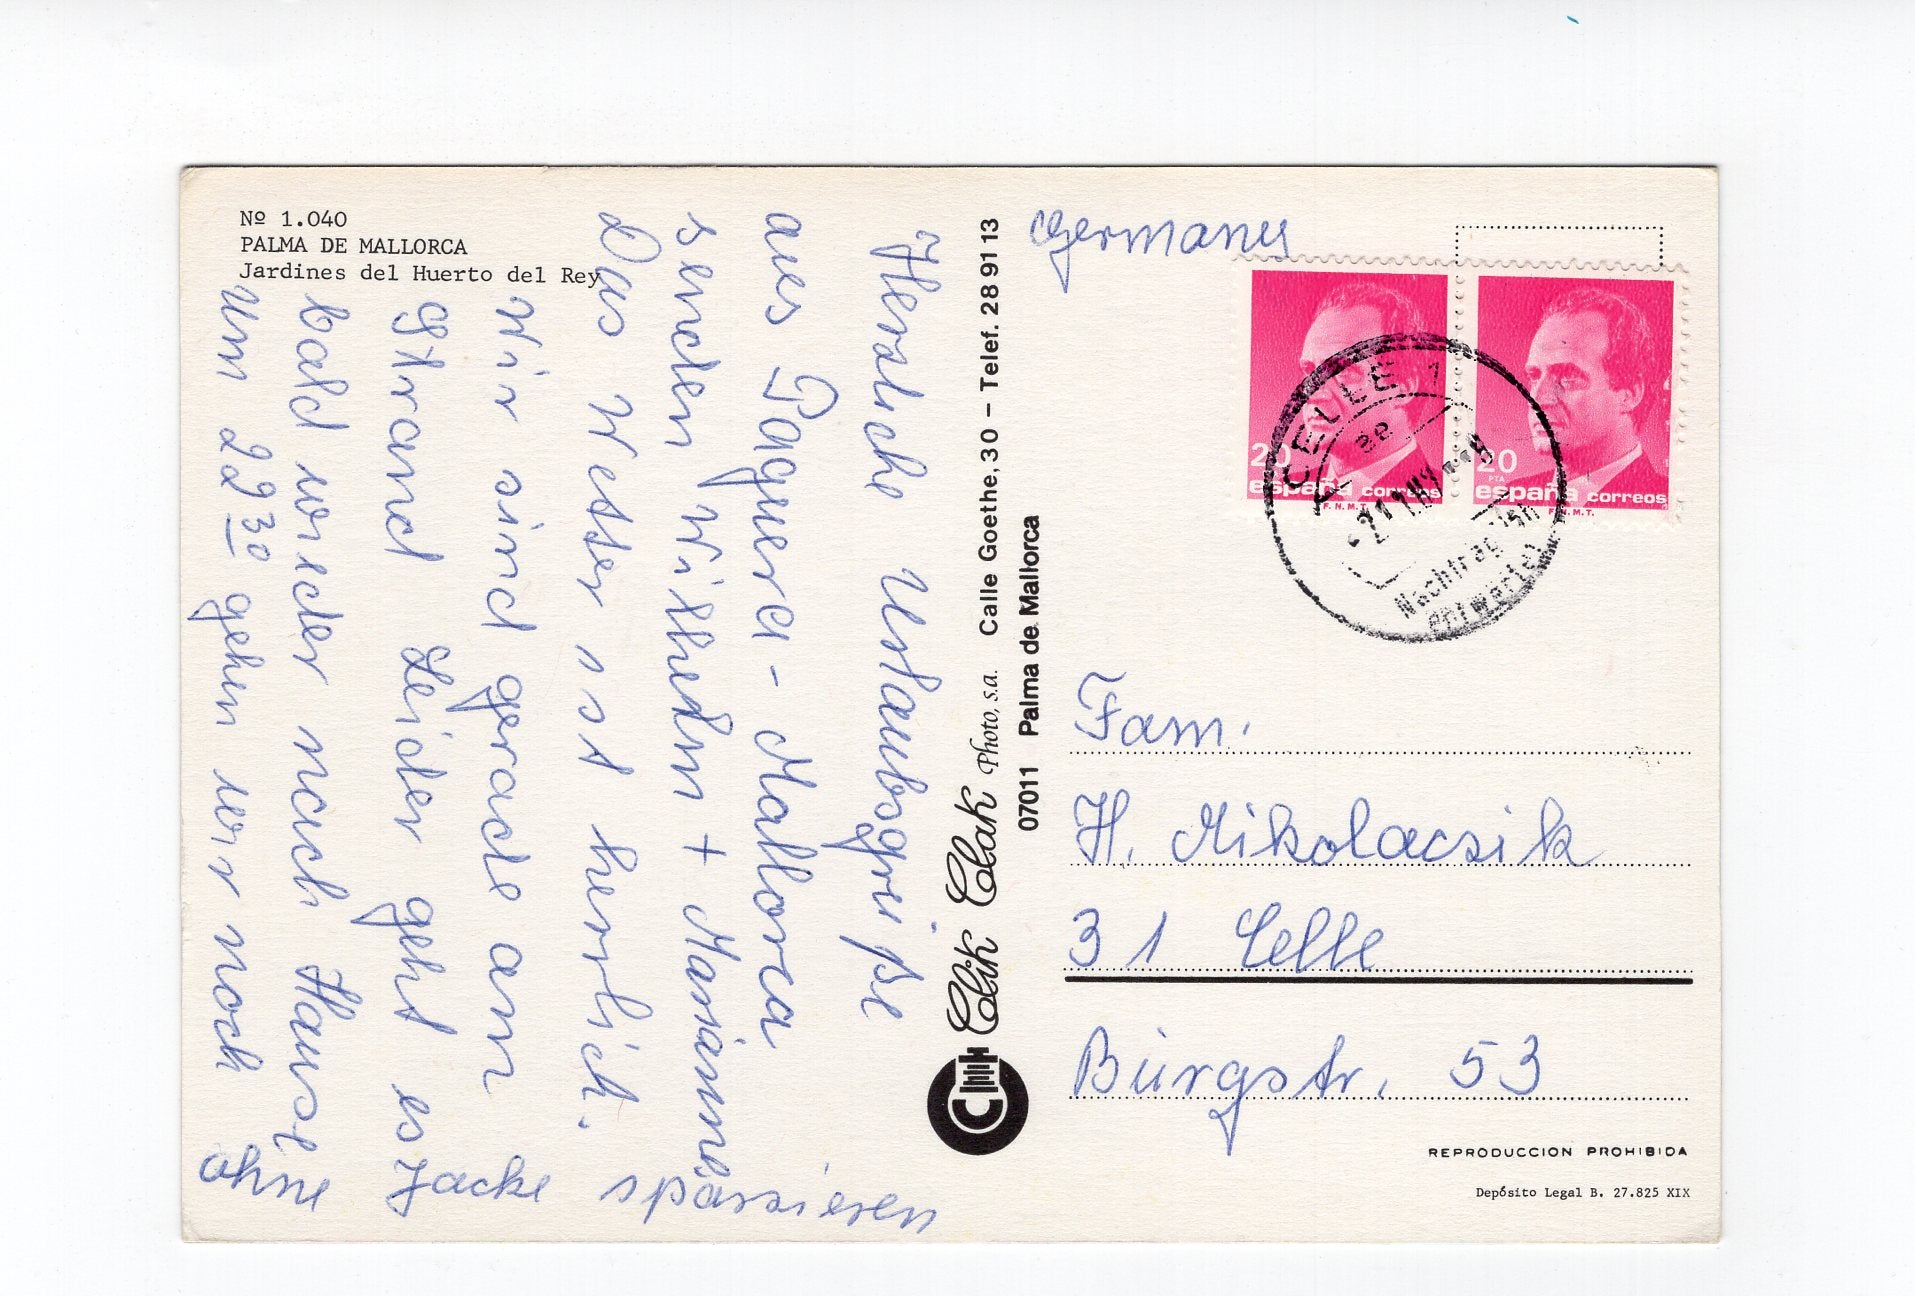 Nº 1.040
PALMA DE MALLORCA
Jardines del Huerto del Rey
Herzliche Urlaubsgrüße
aus Paguera - Mallorca
senden Wilhelm + Marianne
Das Wetter ist herrlich.
Wir sind gerade am
Strand Leider geht es
bald wieder nach Hause
um 22 30 gehen wir noch
ohne Jacke spazieren
Clik Clak Photo, s.a. Calle Goethe, 30 - Telef. 28 91 13
07011 Palma de Mallorca
Germany
20 españa correos
F.N.M.T.
20 PTA españa correos
F.N.M.T.
CELLE 1
ae
Nachträglich
entwertet
Fam.
H. Mikolaczik
31 Celle
Burgstr. 53
REPRODUCCION PROHIBIDA
Depósito Legal B. 27.825 XIX